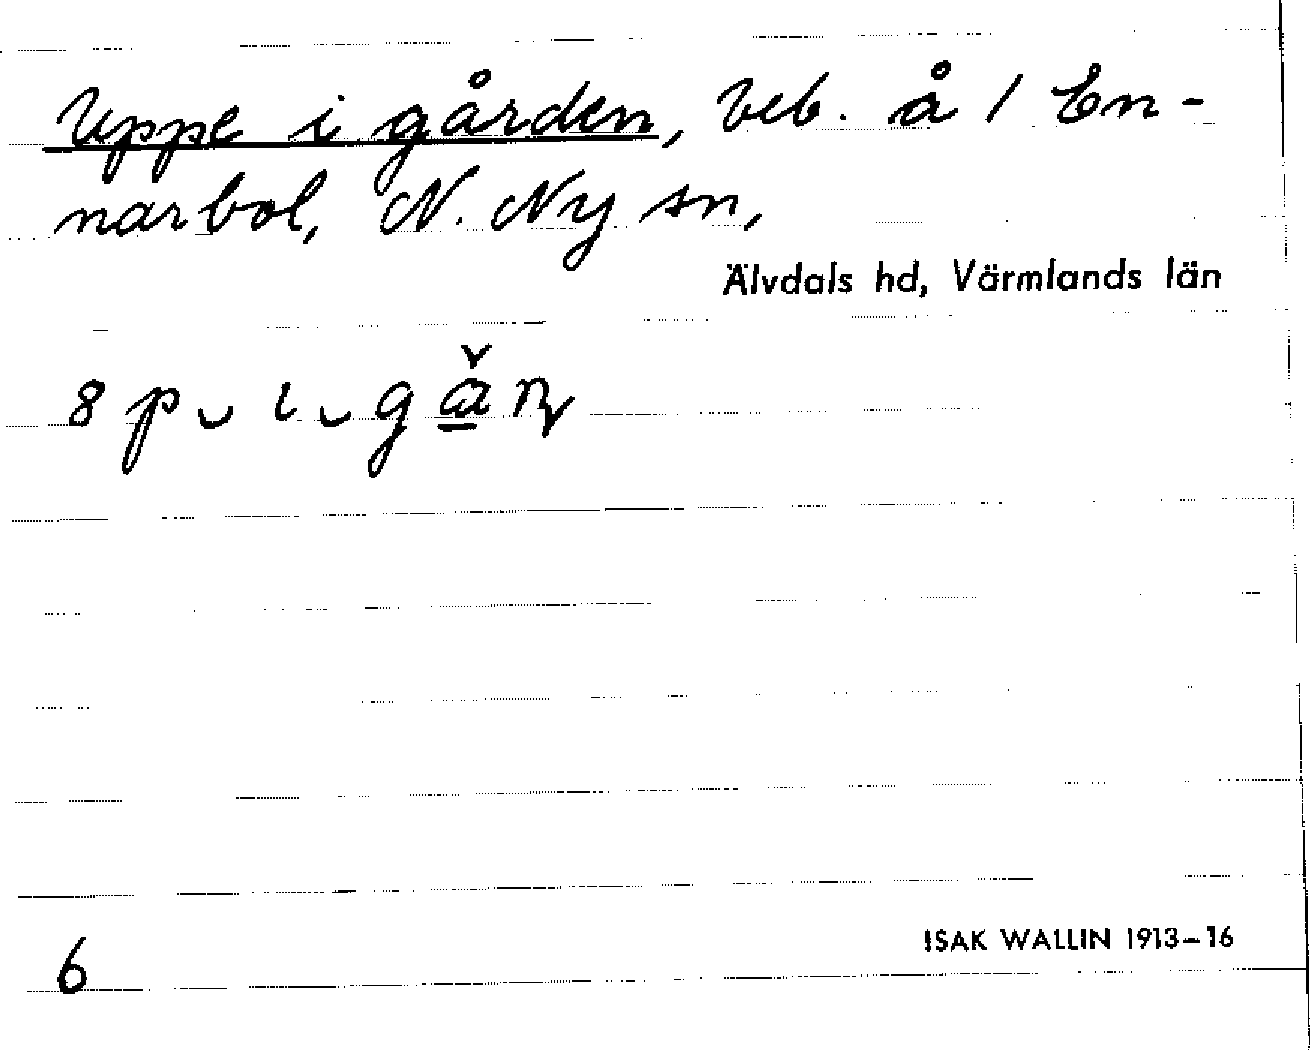 Uppe i gården, beb. å 1 En-
narbol, N. Ny sn,
Älvdals hd, Värmlands län
6
ISAK WALLIN 1913–16